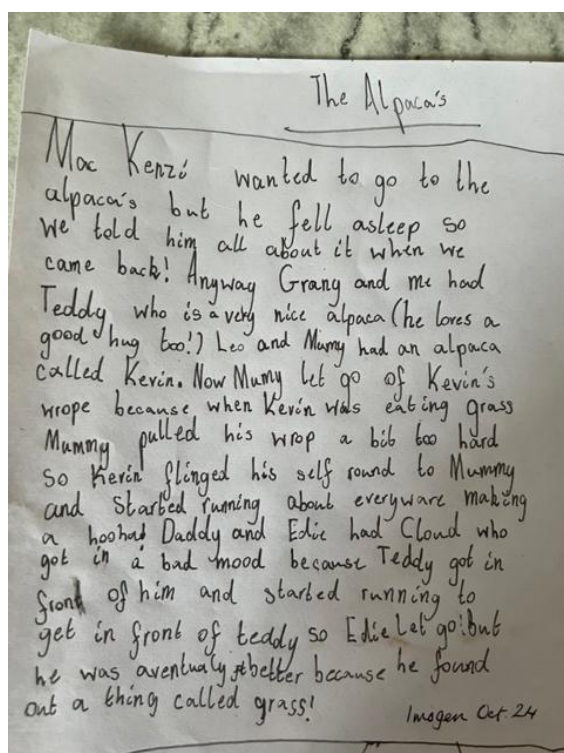 The Alpaca's
Mac Kenzi wanted to go to the
alpaca's but he fell asleep so
We told him all about it when we
came back! Anyway Grang and me had
Teddy who is a very nice alpaca (he loves a
good hug too!) Leo and Mumy had an alpaca
called Kevin. Now Mumy let go of Kevin's
wrope because when Kevin was eating grass
Mummy pulled his wrop a bit too hard
so Kevin flinged his self round to Mummy
and started running about everyware making
a hoohad Daddy and Edie had Cloud who
got in a bad mood because Teddy got in
front of him and started running to
get in front of teddy so Edie let go! But
he was aventualy better because he found
out a thing called grass!
Imogen Oct. 24